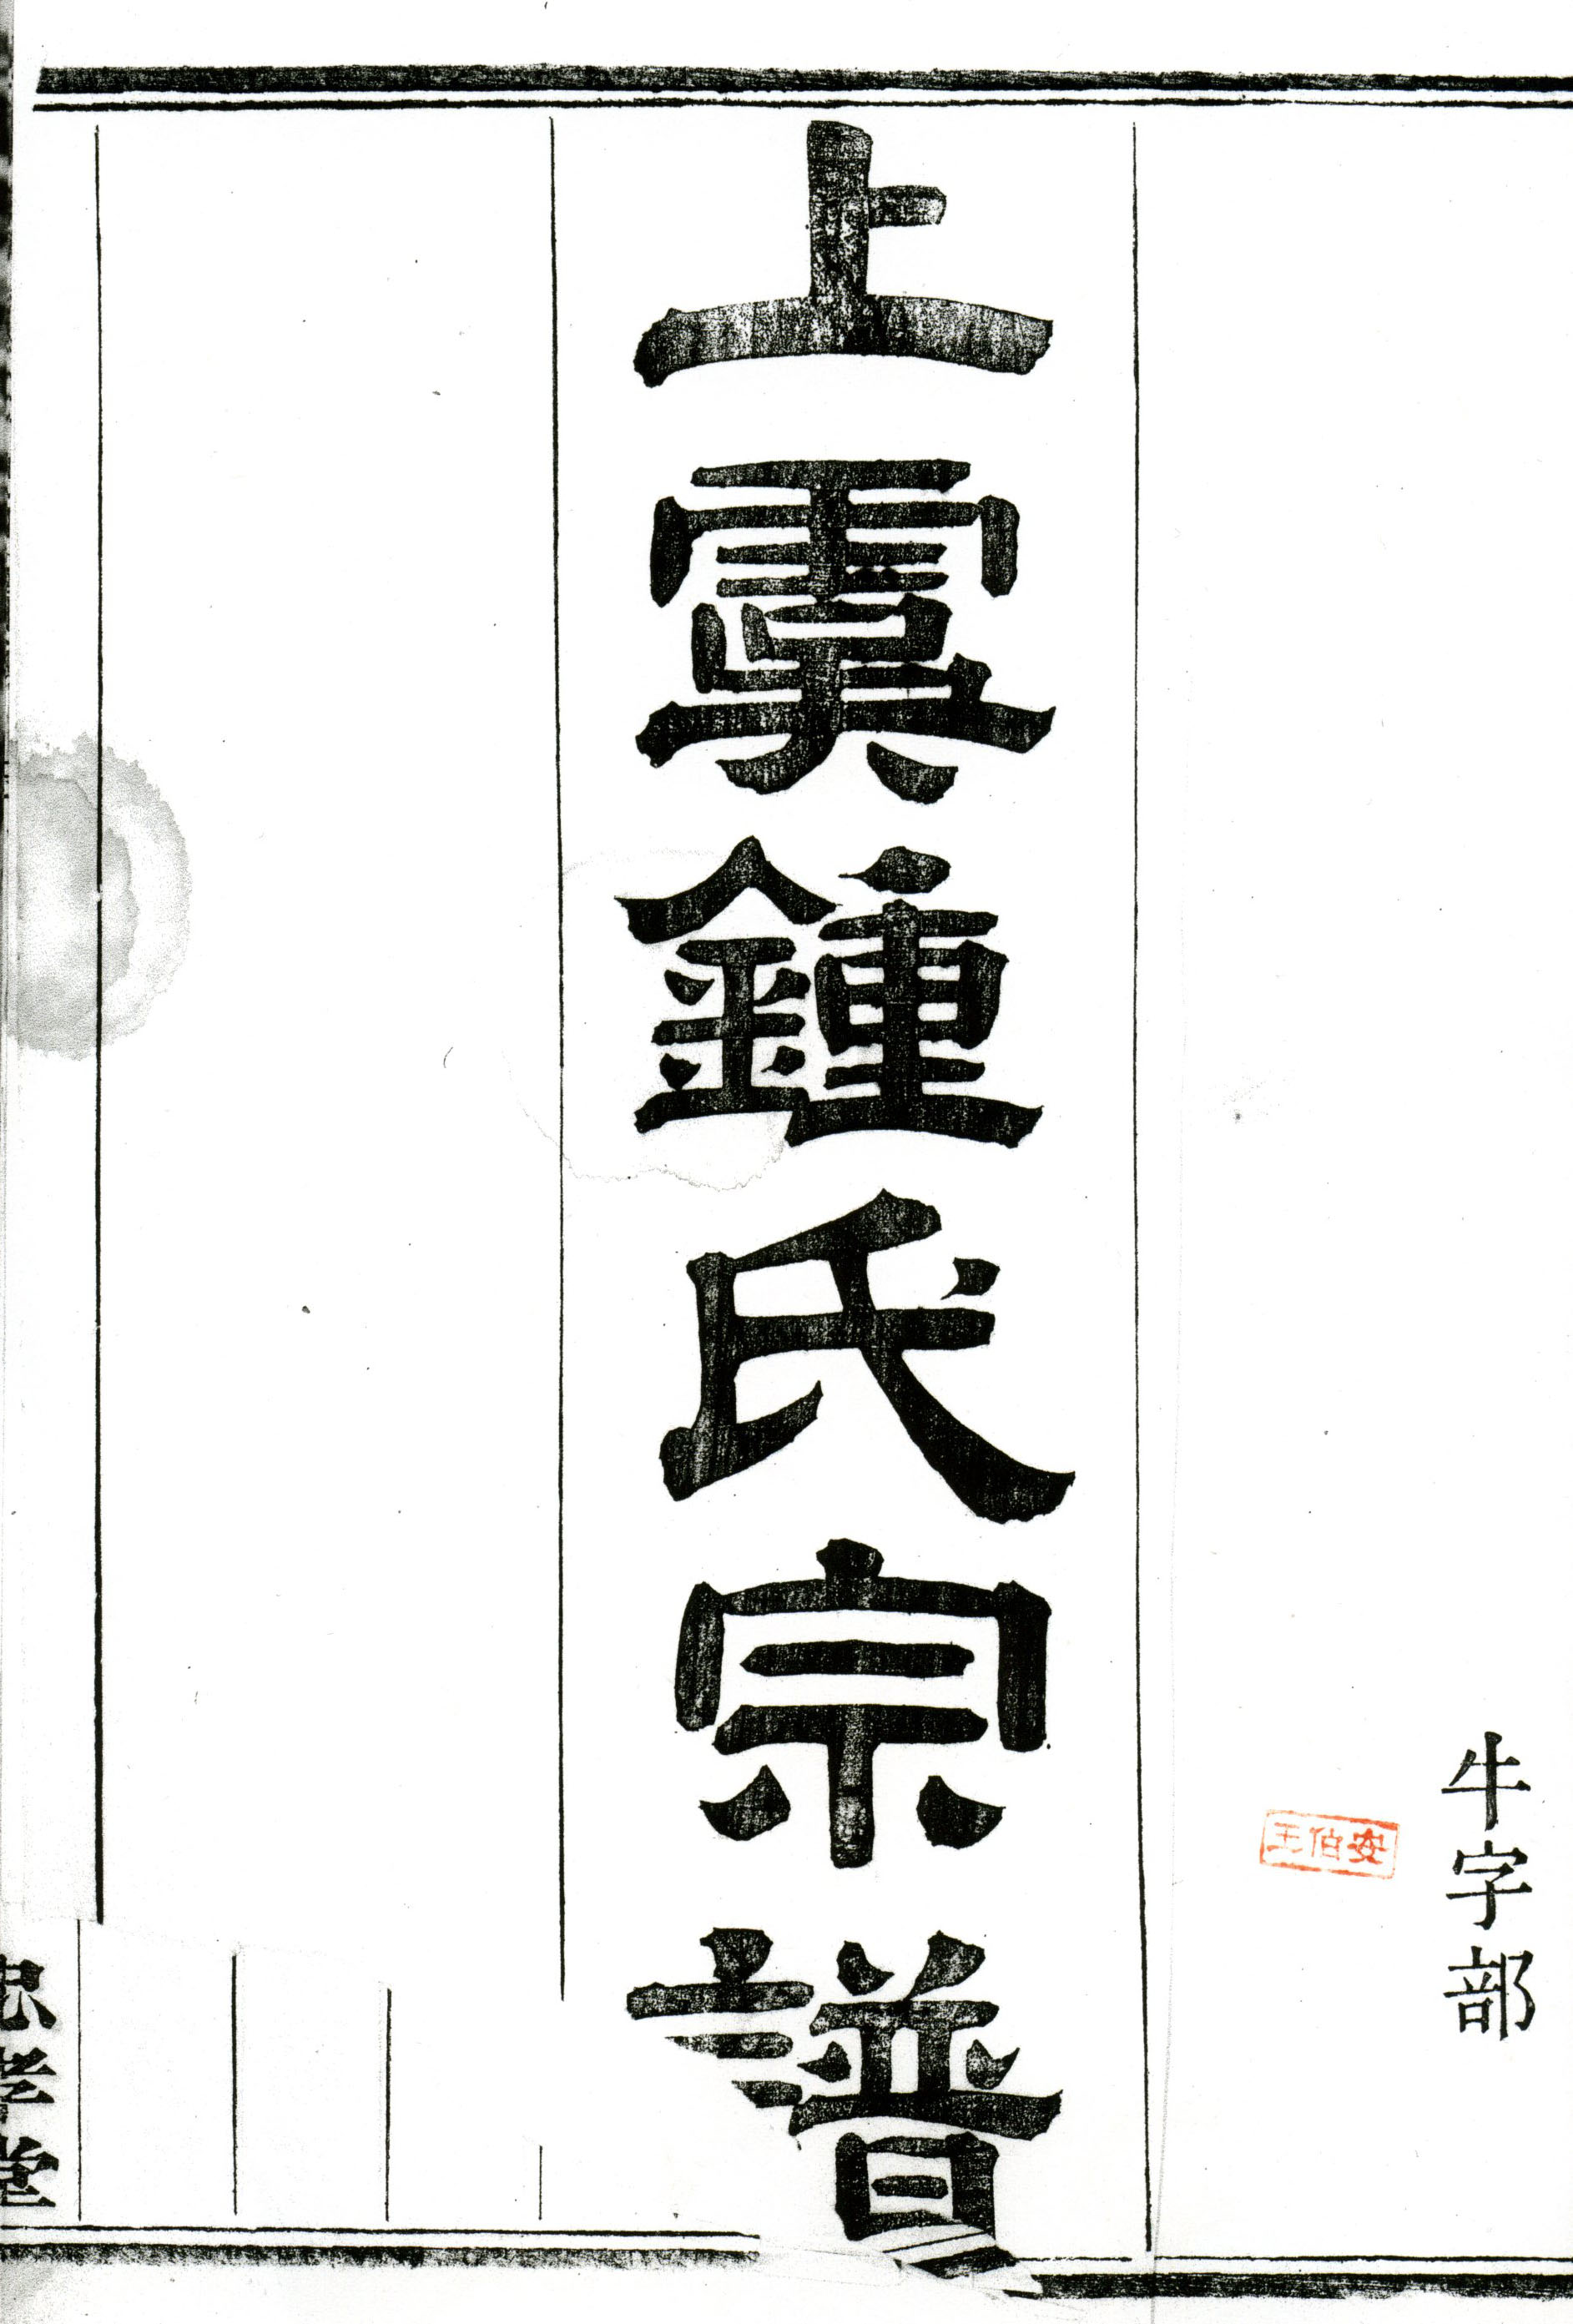 牛字部
王伯安
上虞鍾氏宗譜
忠孝堂